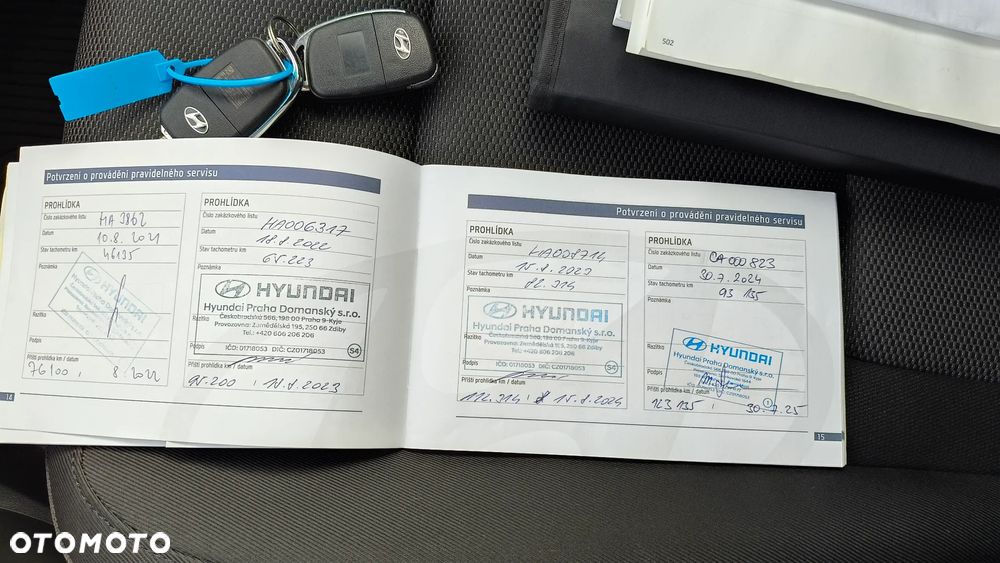 502
Potvrzení o provádění pravidelného servisu
PROHLÍDKA
Číslo zakázkového listu
HA 3862
Datum
10.8. 2021
Stav tachometru km
46135
Poznámka
Razítko
Podpis
Příští prohlídka km / datum
76100, 8. 2022
14
PROHLÍDKA
Číslo zakázkového listu
HA006317
Datum
18.8.2022
Stav tachometru km
65.223
Poznámka
HYUNDAI
Hyundai Praha Domanský s.r.o.
Českobrodská 566, 198 00 Praha 9-Kyje
Provozovna: Zemědělská 195, 250 66 Zdiby
Tel.: +420 606 206 206
Razítko
Podpis
IČD: 01718053 DIČ: CZ01718053
S4
Příští prohlídka km / datum
95.200, 18.8.2023
Potvrzení o provádění pravidelného servisu
PROHLÍDKA
Číslo zakázkového listu
HA008714
Datum
Stav tachometru km
82.314
Poznámka
HYUNDAI
Hyundai Praha Domanský s.r.o.
Českobrodská 566, 198 00 Praha 9-Kyje
Provozovna: Zemědělská 195, 250 66 Zdiby
Tel.: +420 606 206 206
Razítko
Podpis
IČD: 01718053 DIČ: CZ01718053
S4
Příští prohlídka km / datum
112.314, 15.8.2024
PROHLÍDKA
Číslo zakázkového listu
CA 000 823
Datum
30.7.2024
Stav tachometru km
93 135
Poznámka
HYUNDAI
Razítko
Hyundai Praha Domanský s.r.o.
Českobrodská 566, 198 00 Praha 9-Kyje
Podpis
1
Příští prohlídka km / datum
123 135, 30.7.25
15
OTOMOTO